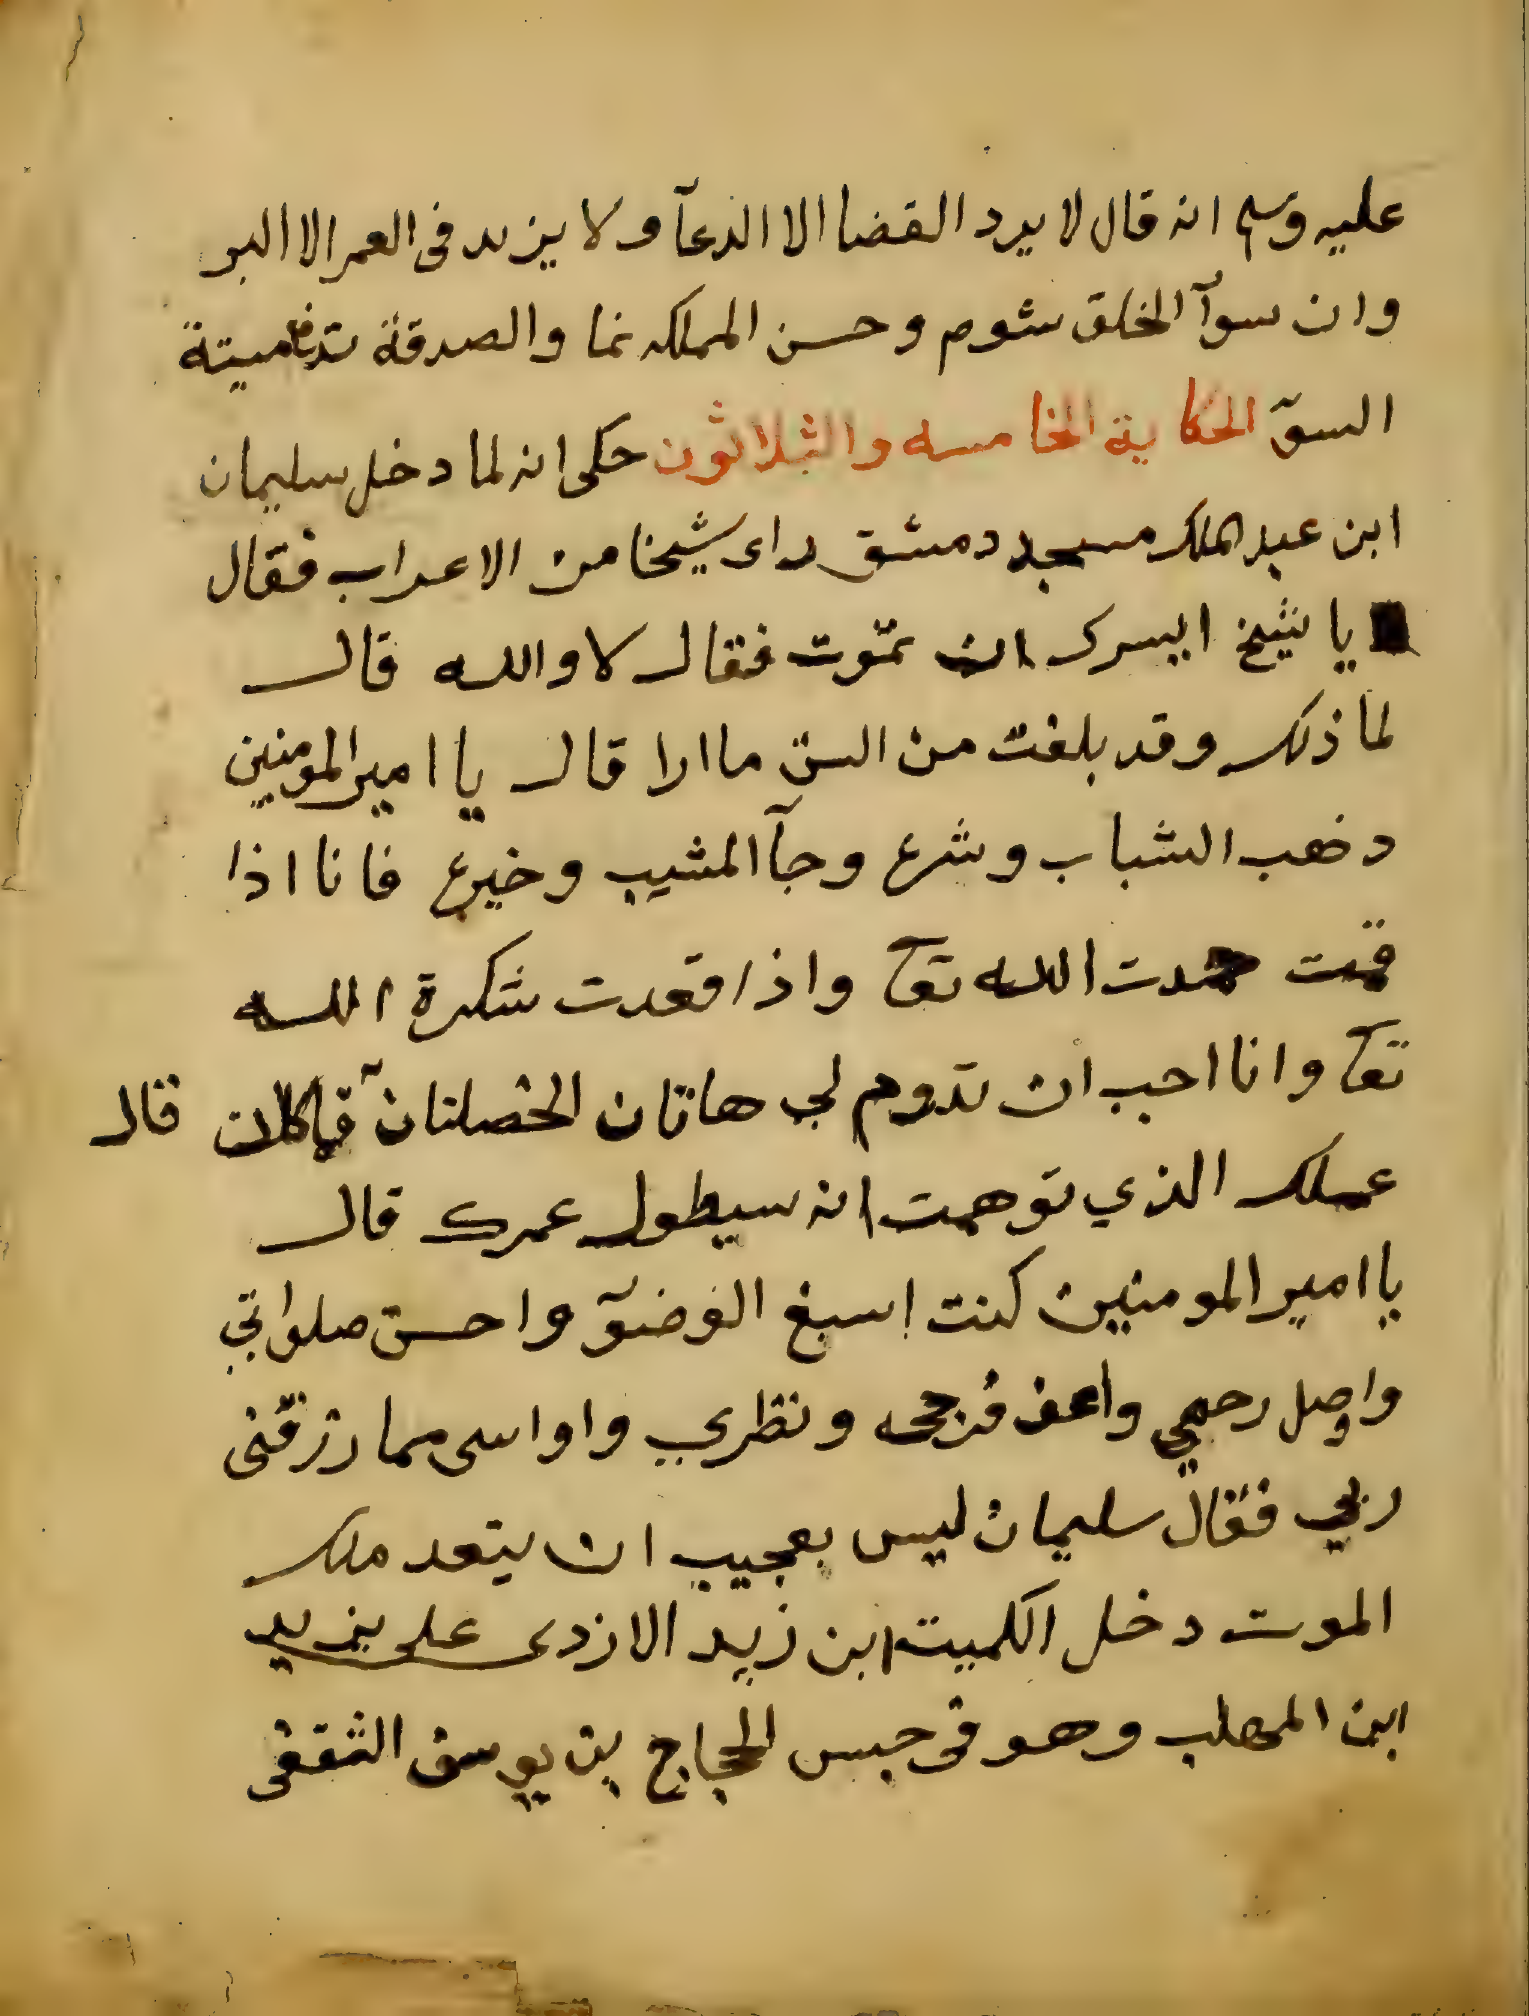 عليه وسلم انه قال لا يرد القضا الا الدعآ ولا يزيد فى العمر الا البر
وان سوآ الخلق شوم وحسن الملكه نما والصدقة تدفع ميتة
السوّ الحكاية الخامسه والثلاثون حكى انه لما دخل سليمان
ابن عبد الملك مسجد دمشق راى شيخا من الاعراب فقال
يا شيخ ايسرك ان تموت فقال لا والله قال
لما ذلك وقد بلغت من السن ما ارا قال يا امير المومنين
ذهب الشباب وشره وجآ المشيب وخيره فانا اذا
قمت حمدت الله تعا واذا قعدت شكرة الله
تعا وانا احب ان تدوم لي هاتان الخصلتان قال
عملك الذي توهمت انه سيطول عمرك قال
يا امير المومنين كنت اسبغ الوضوٓ واحسن صلواتي
واوصل رحمي واعف فرجى ونظري واواسى مما رزقنى
ربي فقال سليمان ليس بعجيب ان يتعد ملك
الموت دخل الكميت ابن زيد الازدى على يزيد
ابن المهلب وهو فى حبس الحجاج بن يوسف الثقفى